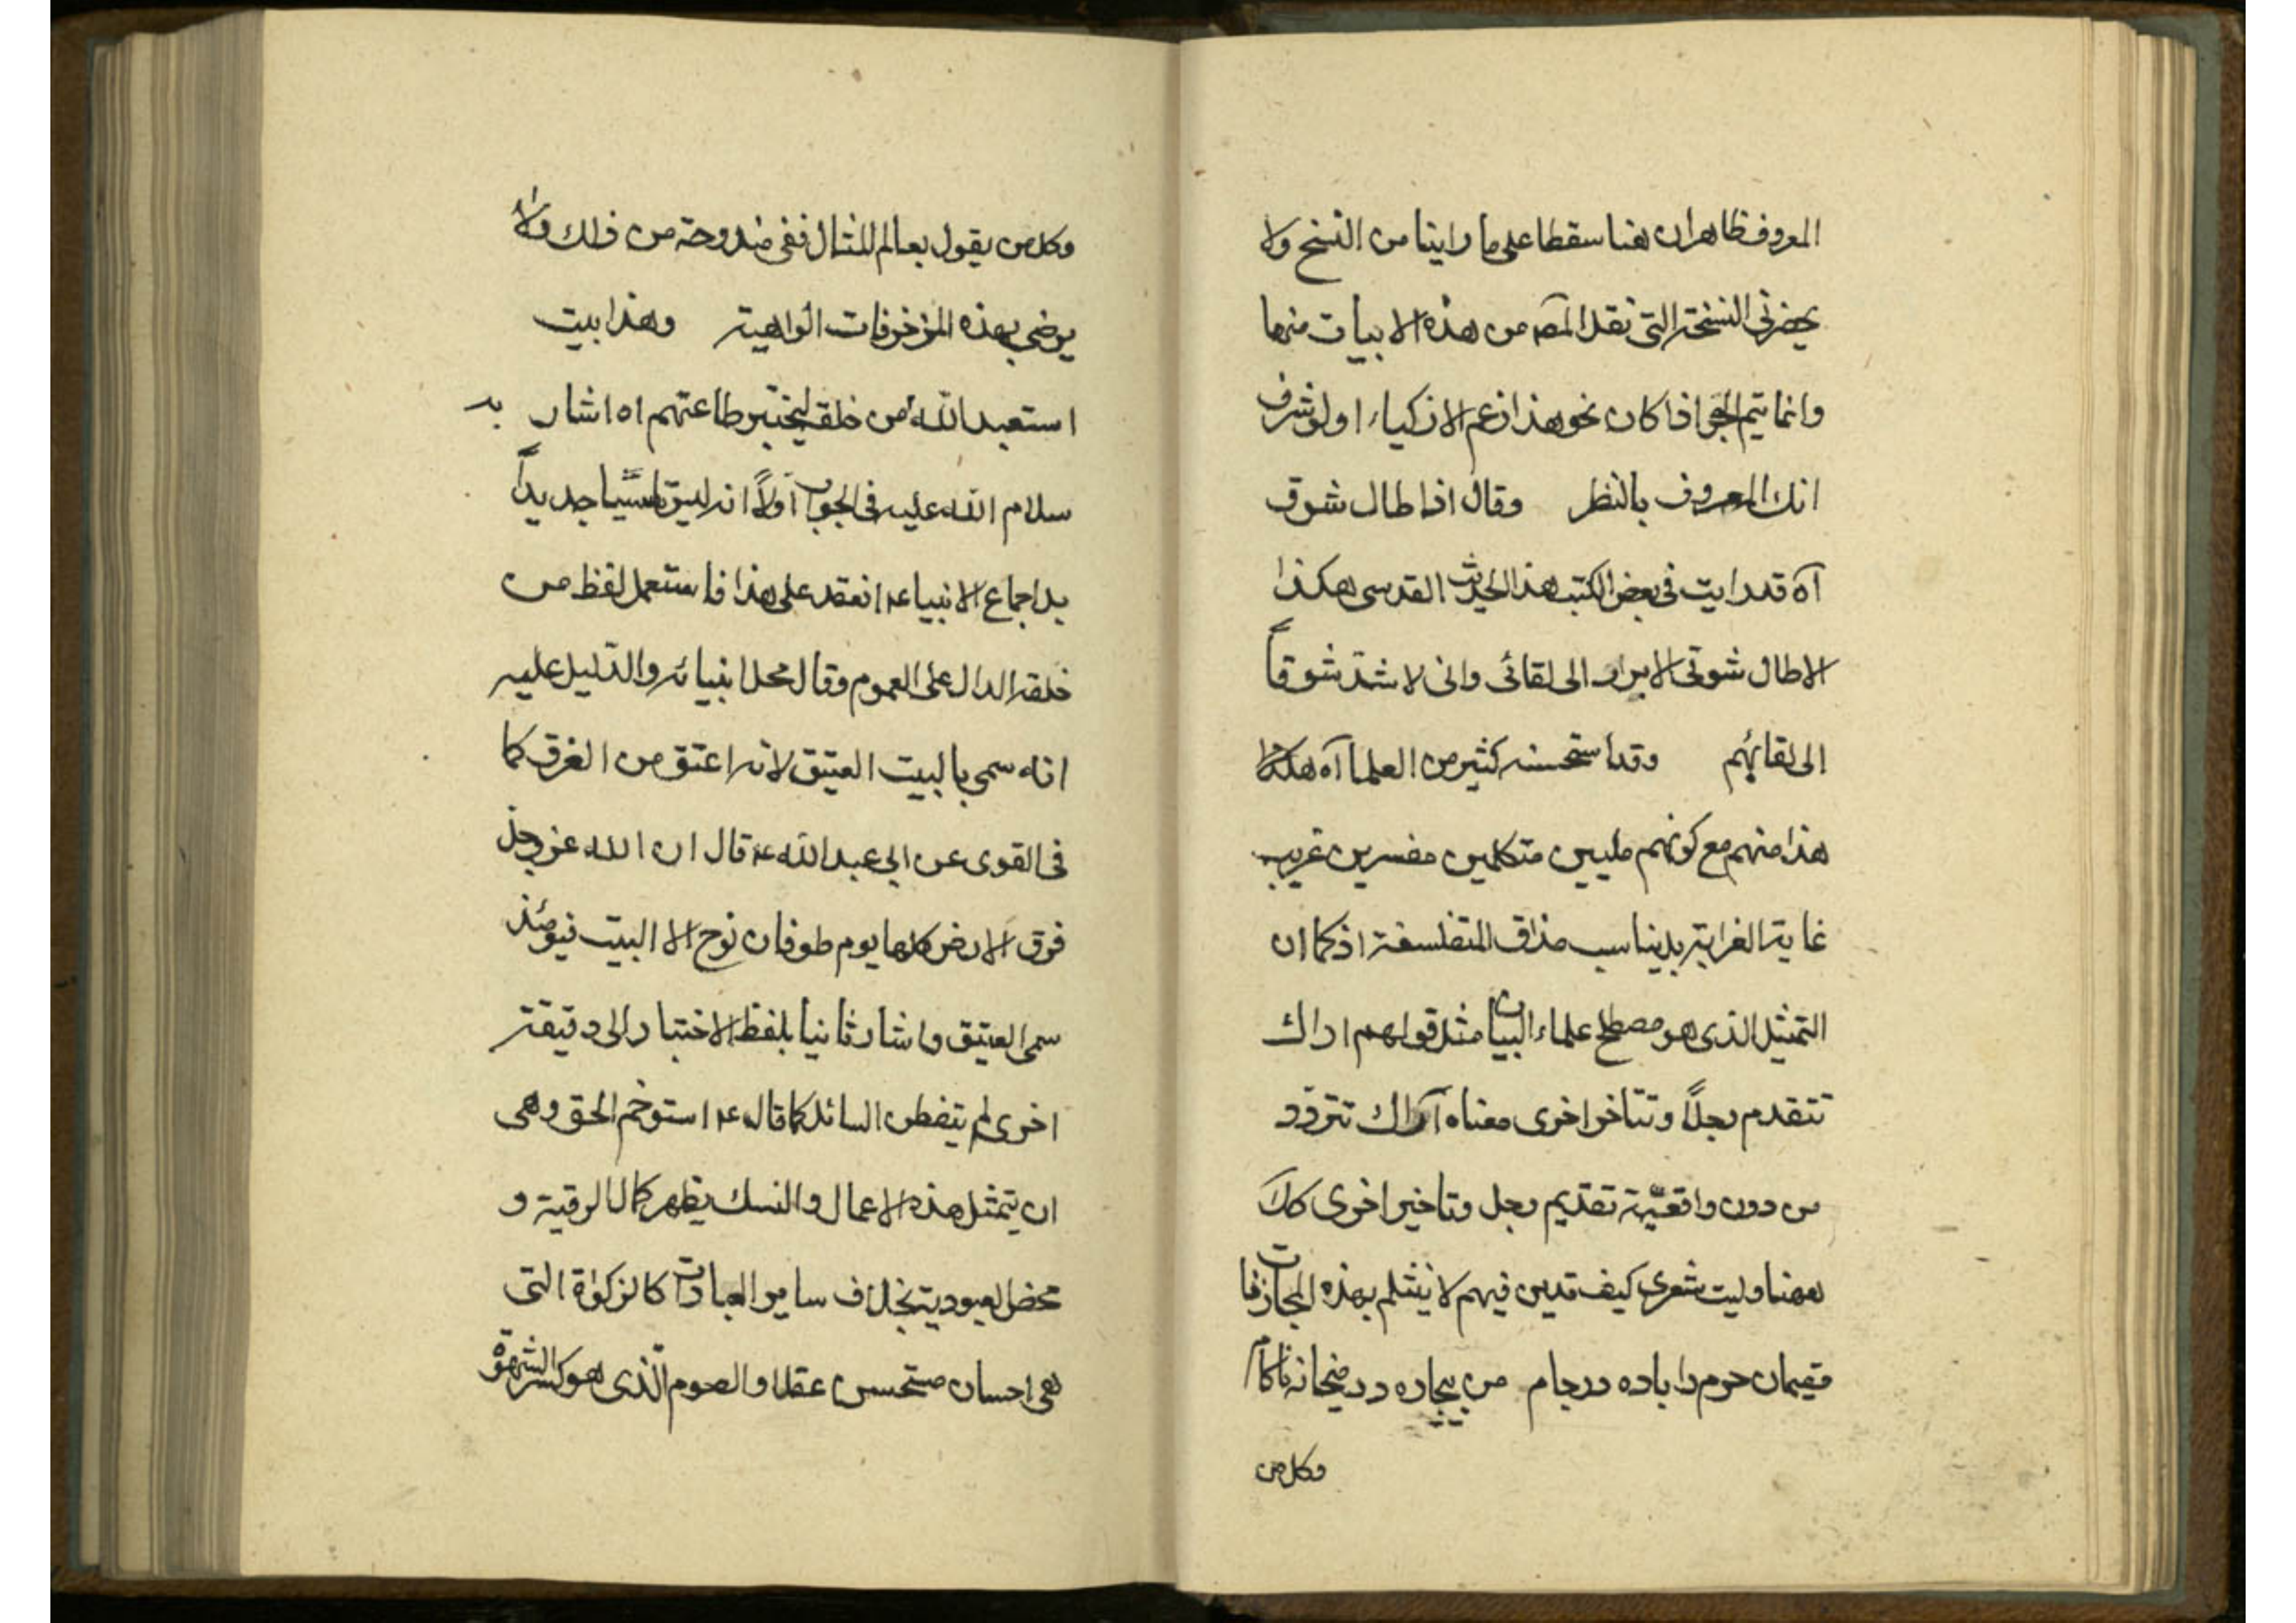 المعروف ظاهرا ان هنا سقطا على ما راينا من النسخ ولا
يحضرني النسخة التي نقل المصه من هذه الابيات منها
وانما يتم الجوا اذا كان نحو هذا زعم الاذكياء اولو شرف
انك المعروف بالنظر وقال اذا طال شوق
آه قد رايت في بعض الكتب هذا الحديث القدسى هكذا
الا طال شوق الابرار الى لقائى وانى لاشد شوقاً
الى لقائهم وقد استحسنه كثير من العلما آه هكذا
هذا منهم مع كونهم مليين متكلمين مفسرين غريب
غاية الغرابة بل يناسب مذاق المتفلسفة اذ كما ان
التمثيل الذى هو مصطلح علماء البيان مثل قولهم اراك
تتقدم رجلاً وتتاخر اخرى معناه اراك تتردد
من دون واقعيّة تقديم رجل وتاخير اخرى كك
ههنا وليت شعرى كيف تدين فيهم لا ينثلم بهذه المجازفات
مقيمان حرم را باده در جام من بيچاره در ميخانه ناكام
وكل من
وكل من يقول بعالم المثال ففى مندوحة من ذلك ولا
يرضى بهذه المزخرفات الواهية وهذا بيت
استعبد الله من خلقه ليختبر طاعتهم اه اشار بد
سلام الله عليه فى الجواب اوّلاً انه ليس تاسيّسا جديداً
بل اجماع الانبياء عه انعقد على هذا فاستعمل لفظ من
خلقه الدال على العموم وقال محل انبيائه والدّليل عليه
انه سمى بالبيت العتيق لانه اعتق من الغرق كما
فى القوى عن ابى عبد الله عه قال ان الله عز وجل
فوق الارض كلها يوم طوفان نوح الا البيت فيومئذ
سمى العتيق واشار ثانيا بلفظ الاختبار الى دقيقة
اخرى لم يتفطن السائل كما قال عه استوخم الحق وهى
ان يتمثل هذه الاعمال والنسك يظهر كمال الرقية و
محض العبودية بخلاف ساير العبادات كالزكوة التى
هى احسان مستحسن عقلا والصوم الّذى هو كسر الشهوة